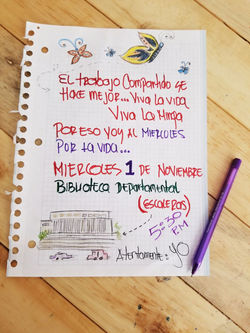 El trabajo Compartido se
Hace mejor... Viva la vida
Viva la Minga
Por eso yoy al miercoles
Por la vida...
Miercoles 1 de Noviembre
Biblioteca Departamental
(Escaleras)
5:30
P.M
Atentamente: yo